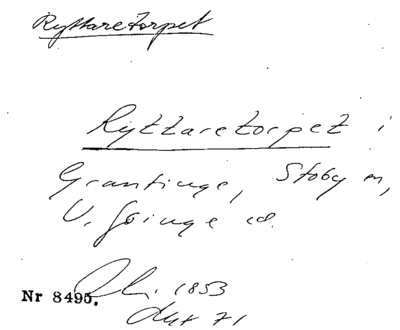 Ryttaretorpet
Ryttaretorpet i
Grantinge, Stoby sn,
V. Göinge hd.
1853
Nr 8495.
akt 71